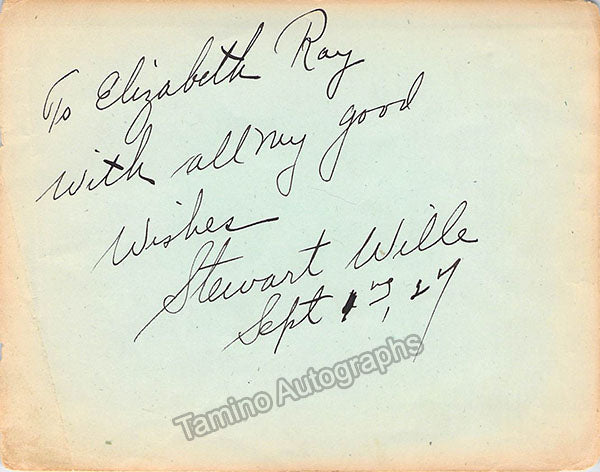 To Elizabeth Ray
with all my good
Wishes
Stewart Wille
Sept 17, 27
Tamino Autographs